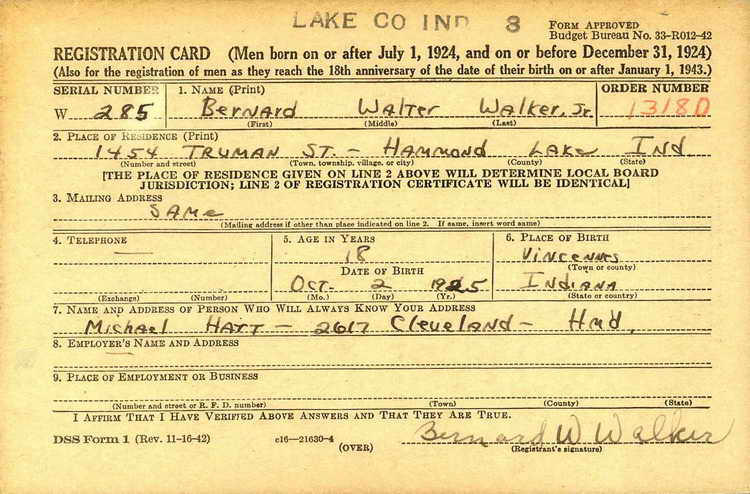 LAKE CO IND 3
FORM APPROVED
Budget Bureau No. 33-R012-42
REGISTRATION CARD (Men born on or after July 1, 1924, and on or before December 31, 1924)
(Also for the registration of men as they reach the 18th anniversary of the date of their birth on or after January 1, 1943.)
SERIAL NUMBER 1. NAME (Print) ORDER NUMBER
W 285 Bernard Walter Walker, Jr 13180
(First) (Middle) (Last)
2. PLACE OF RESIDENCE (Print)
1454 TRUMAN ST. - HAMMOND LAKE Ind.
(Number and street) (Town, township, village, or city) (County) (State)
[THE PLACE OF RESIDENCE GIVEN ON LINE 2 ABOVE WILL DETERMINE LOCAL BOARD
JURISDICTION; LINE 2 OF REGISTRATION CERTIFICATE WILL BE IDENTICAL]
3. MAILING ADDRESS
SAMe
(Mailing address if other than place indicated on line 2. If same, insert word same)
4. TELEPHONE 5. AGE IN YEARS 6. PLACE OF BIRTH
— 18 Vincennes
DATE OF BIRTH (Town or county)
Oct. 2 1925 Indiana
(Exchange) (Number) (Mo.) (Day) (Yr.) (State or country)
7. NAME AND ADDRESS OF PERSON WHO WILL ALWAYS KNOW YOUR ADDRESS
Michael HATT - 2617 Cleveland - Hmd.
8. EMPLOYER'S NAME AND ADDRESS
—
9. PLACE OF EMPLOYMENT OR BUSINESS
(Number and street or R. F. D. number) (Town) (County) (State)
I AFFIRM THAT I HAVE VERIFIED ABOVE ANSWERS AND THAT THEY ARE TRUE.
DSS Form 1 (Rev. 11-16-42) c16—21630-4 Bernard W Walker
(OVER) (Registrant's signature)